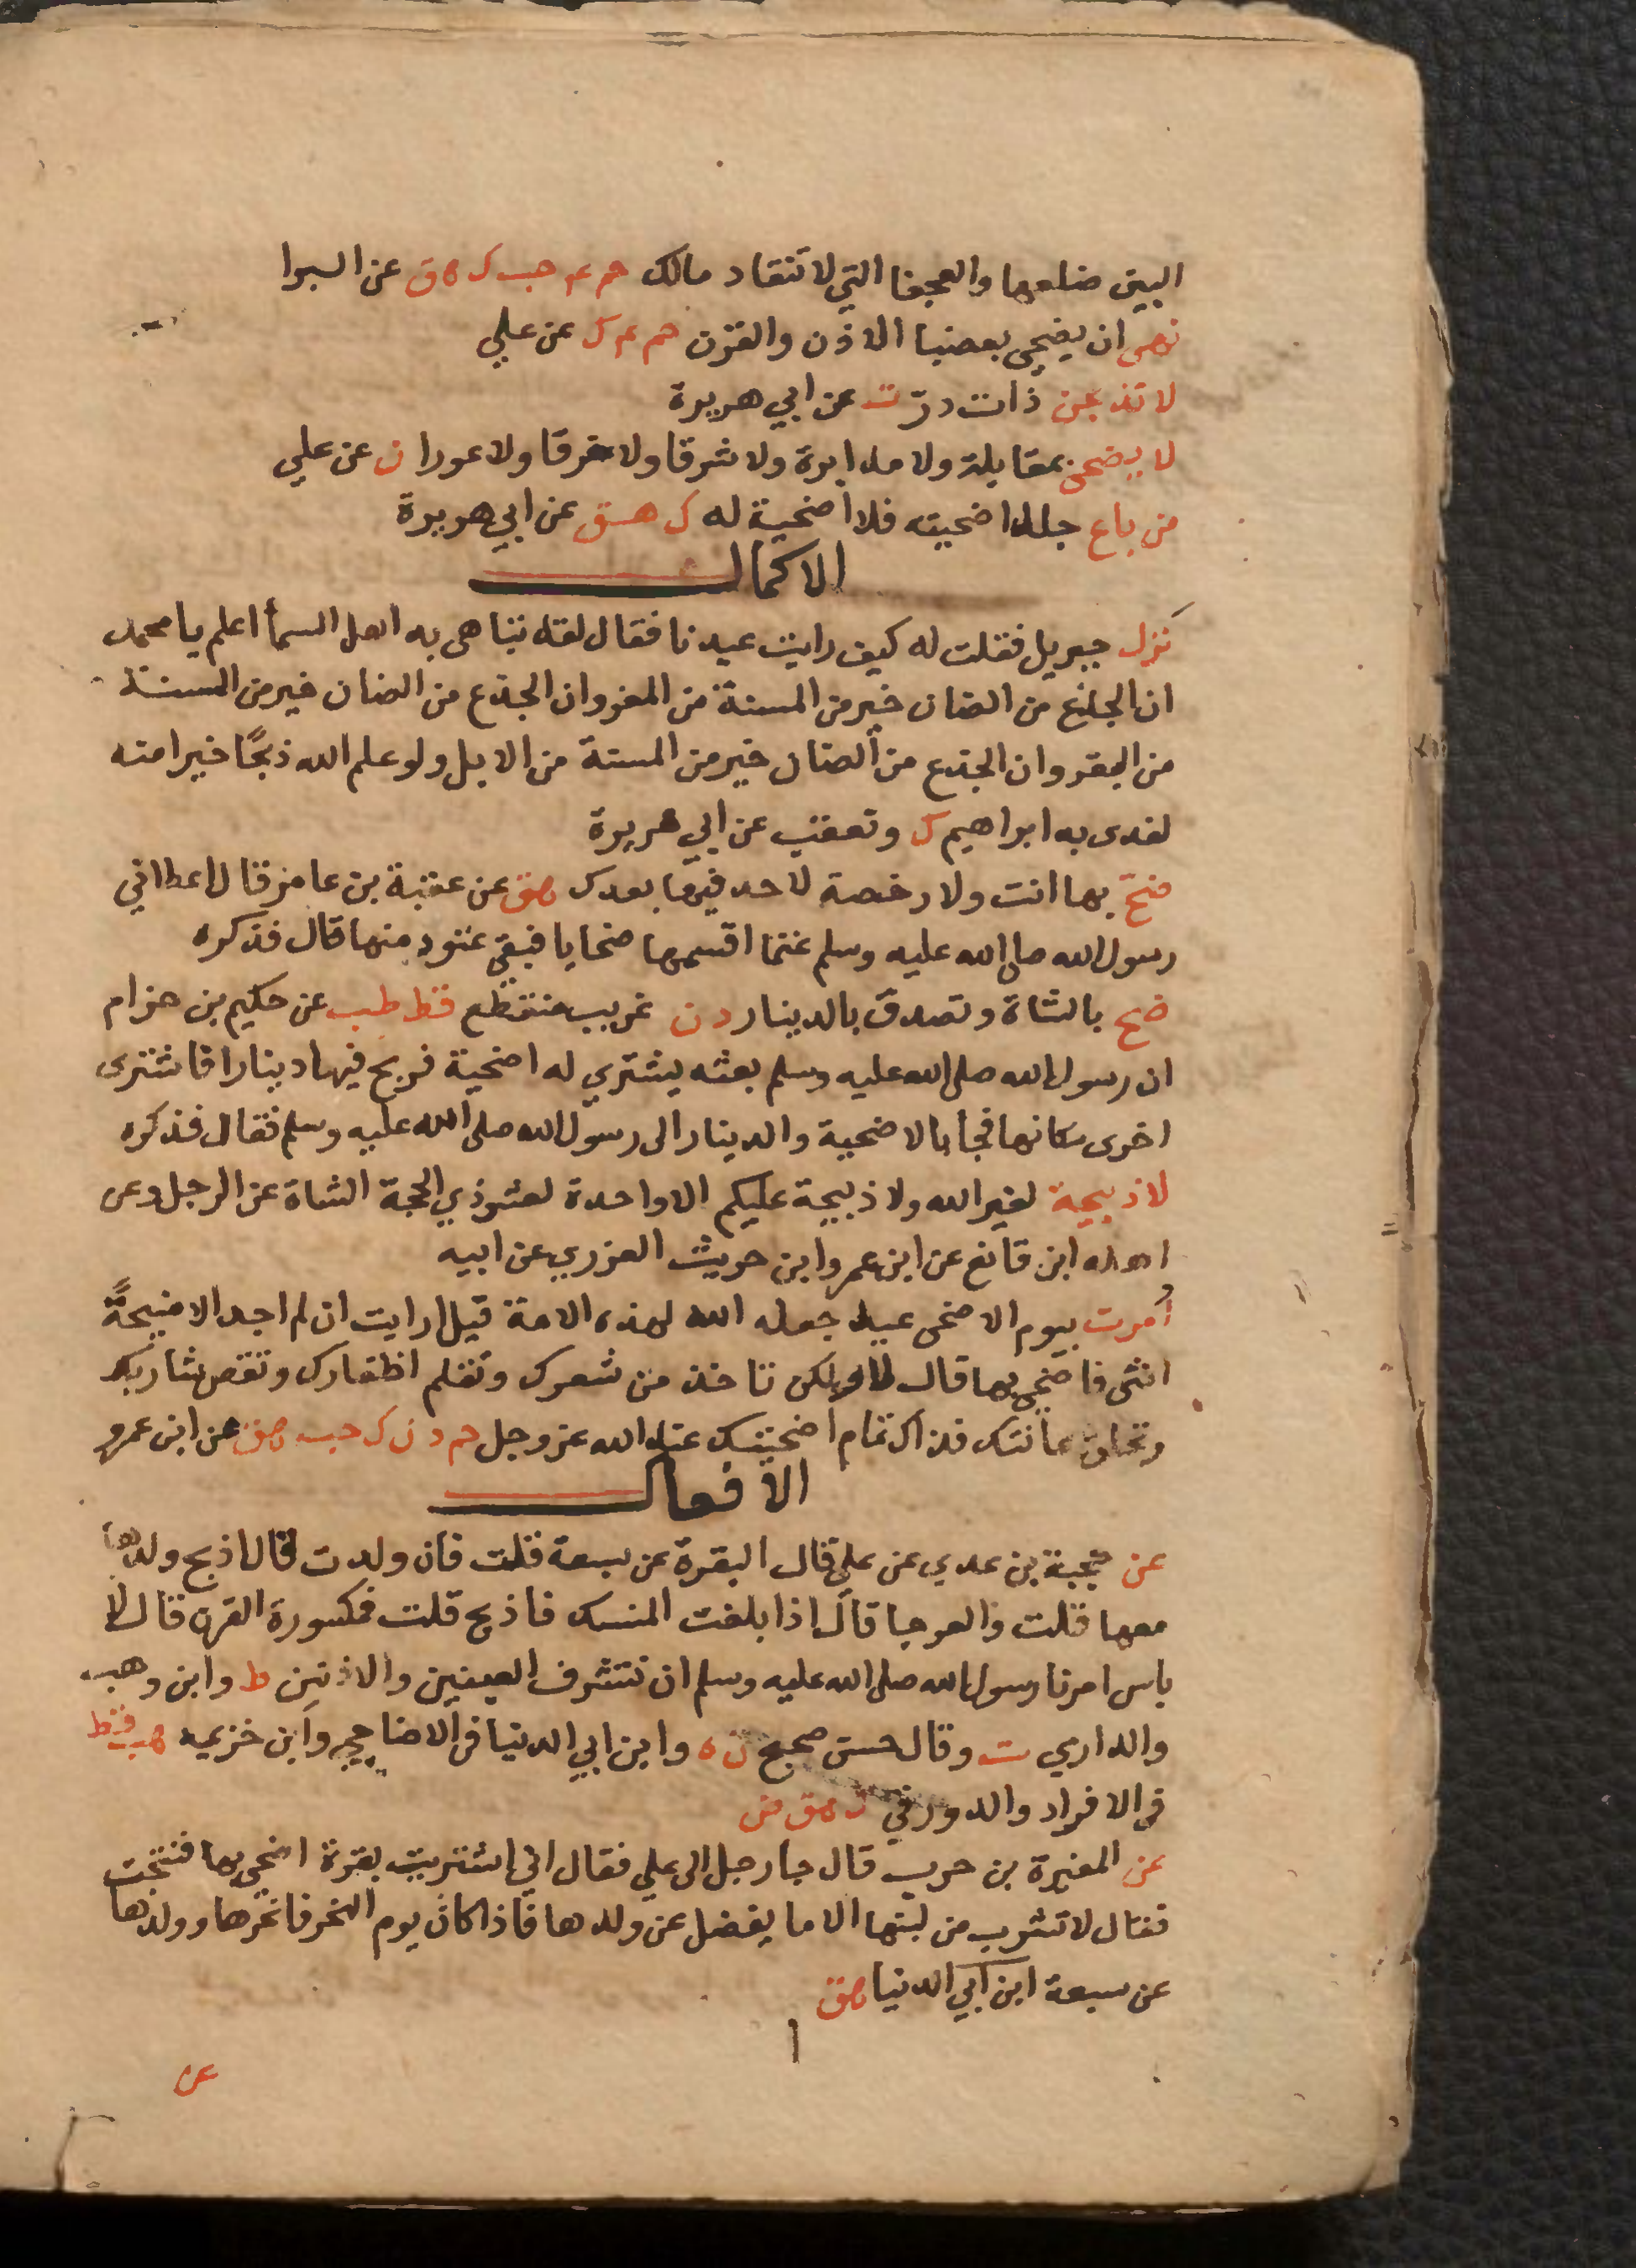 البين ضلعها والعجفا التي لا تنقاد مالك حم عه حب ك هق عن البرا
نهى ان يضحى بعضبا الاذن والقرن حم عه ك عن علي
لا تذبحن ذات در ت عن ابي هريرة
لا يضحى بمقابلة ولا مدابرة ولا شرقا ولا خرقا ولا عورا ن عن علي
من باع جلد اضحيته فلا اضحية له ك هق عن ابي هريرة
الاكمال
نزل جبريل فقلت له كيف رايت عيدنا فقال لقد تباهى به اهل السمأ اعلم يا محمد
ان الجذع من الضان خير من المسنة من المعز وان الجذع من الضان خير من المسنة
من البقر وان الجذع من الضان خير من المسنة من الابل ولو علم الله ذبحًا خيرا منه
لفدى به ابراهيم ك وتعقب عن ابي هريرة
ضح بها انت ولا رخصة لاحد فيها بعدك هق عن عقبة بن عامر قال اعطاني
رسول الله صلى الله عليه وسلم غنما اقسمها ضحايا فبقي عتود منها قال فذكره
ضح بالشاة وتصدق بالدينار د ن غريب منقطع قط طب عن حكيم بن حزام
ان رسول الله صلى الله عليه وسلم بعثه يشتري له اضحية فربح فيها دينارا فاشترى
اخرى مكانها فجا بالاضحية والدينار الى رسول الله صلى الله عليه وسلم فقال فذكره
لا ذبيحة لغير الله ولا ذبيحة عليكم الا واحدة لعشر ذي الحجة الشاة عن الرجل وعن
اهله ابن قانع عن ابن عمرو ابن حريث العزري عن ابيه
أُمرت بيوم الاضحى عيد جعله الله لهذه الامة قيل ارايت ان لم اجد الا منيحةً
انثى فاضحي بها قال لا ولكن تاخذ من شعرك وتقلم اظفارك وتقص شاربك
وتحلق عانتك فذاك تمام اضحيتك عند الله عز وجل حم د ن ك حب هق عن ابن عمرو
الافعال
عن حجية بن عدي عن علي قال البقرة عن سبعة قلت فان ولدت قال اذبح ولدها
معها قلت والعرجا قال اذا بلغت المنسك فاذبح قلت فمكسورة القرن قال لا
باس امرنا رسول الله صلى الله عليه وسلم ان نتشرف العينين والاذنين ط وابن وهب
والدارمي ت وقال حسن صحيح ن ه وابن ابي الدنيا في الاضاحي وابن خزيمه حب قط
في الافراد والدورقي ك هق ض
عن المغيرة بن حرب قال جا رجل الى علي فقال اني اشتريت بقرة اضحي بها فنتجت
فقال لا تشرب من لبنها الا ما يفضل عن ولدها فاذا كان يوم النحر فانحرها وولدها
عن سبعة ابن ابي الدنيا هق
عن